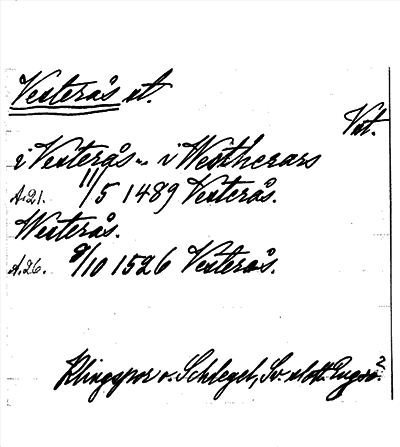 Vesterås st.
Vst.
i Vesterås ~ i Westherars
A.21. 11/5 1489 Vesterås.
Westerås.
A.26. 8/10 1526 Vesterås.
Klingspor o. Schlegel, Sv. slott. Engsö?